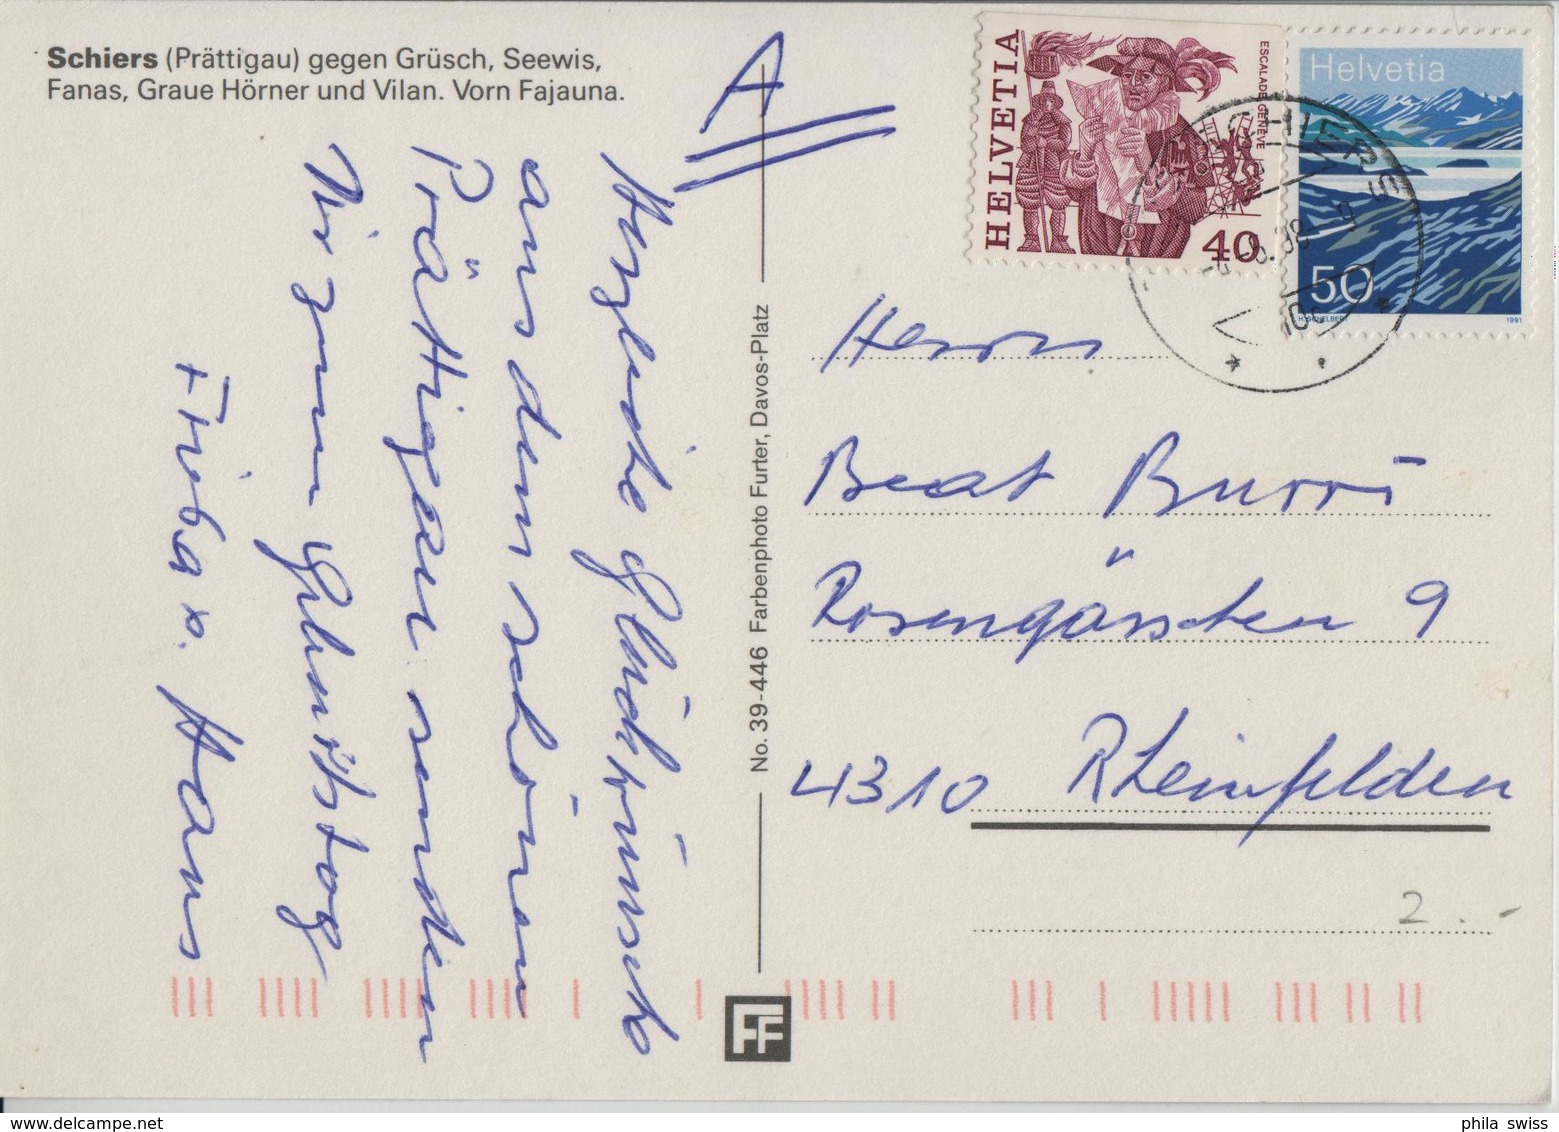 Schiers (Prättigau) gegen Grüsch, Seewis,
Fanas, Graue Hörner und Vilan. Vorn Fajauna.
A
HELVETIA
ESCALADE GENÈVE
40
Helvetia
50
H. SCHELBERT 1991
SCHIERS
Herzliche Glückwünsche
aus dem schönen
Prättigau senden
Dir zum Geburtstag
Frieba u. Hans
No. 39-446 Farbenphoto Furter, Davos-Platz
Herrn
Beat Burri
Rosengässchen 9
4310 Rheinfelden
2.-
FF
phila swiss